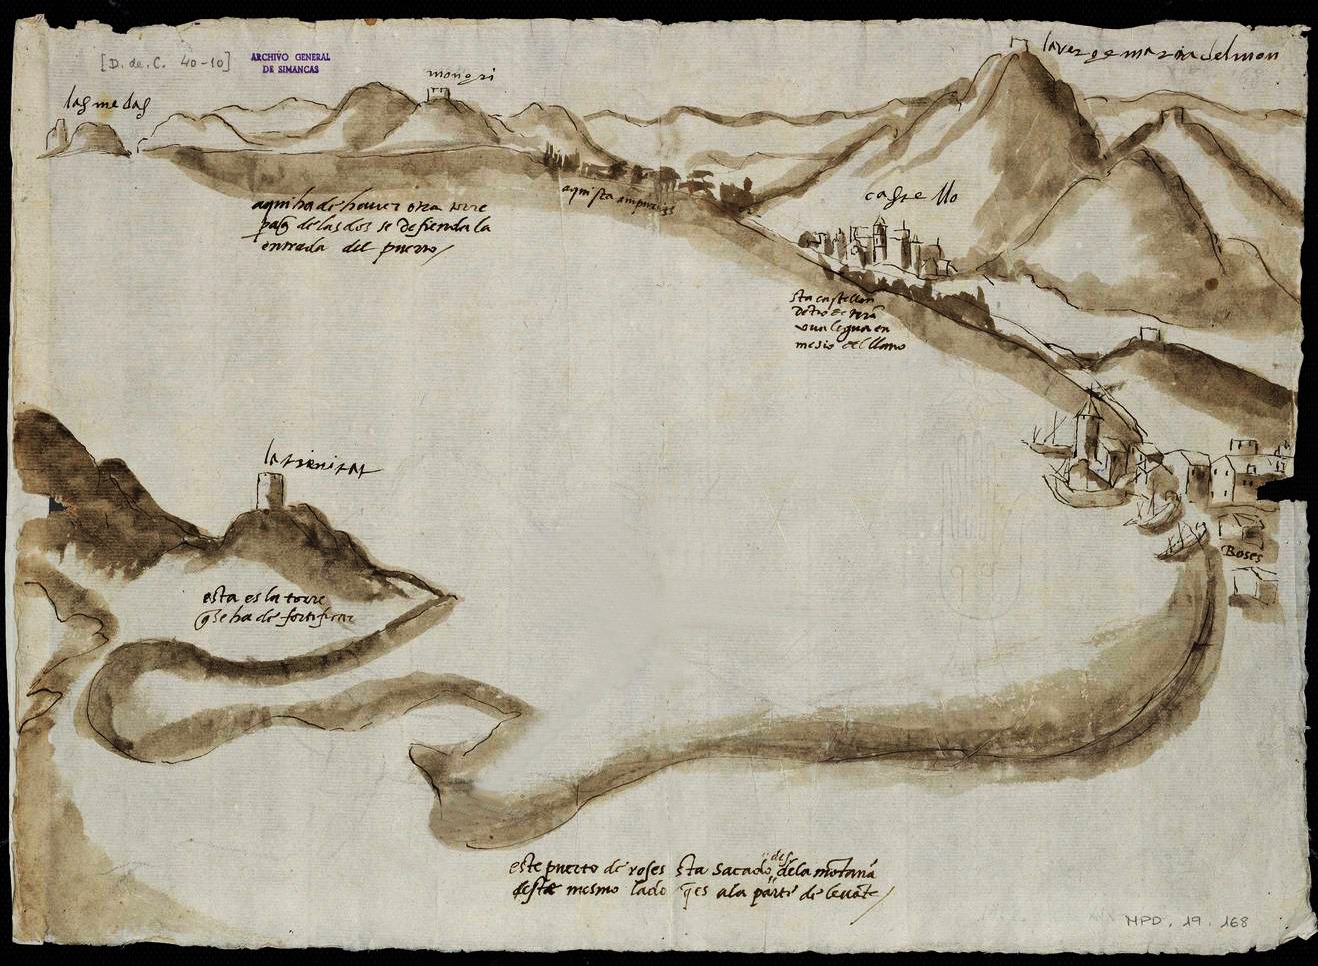 [D. de. C. 40-10]
ARCHIVO GENERAL
DE SIMANCAS
las medas
mongri
la verge maria del mon
aqui ha de haver otra torre
paq̃ de las dos se defienda la
entrada del puerto/
aqui sta ampurias
castello
sta castellon
dẽtro ẽ terã
una legua en
mesio del llano
la trinitat
esta es la torre
q̃ se ha de fortificar
Roses
este puerto de roses sta sacado des de la mõtaná
desta mesmo lado q̃ es a la parte de levãte/
MPD. 19. 168